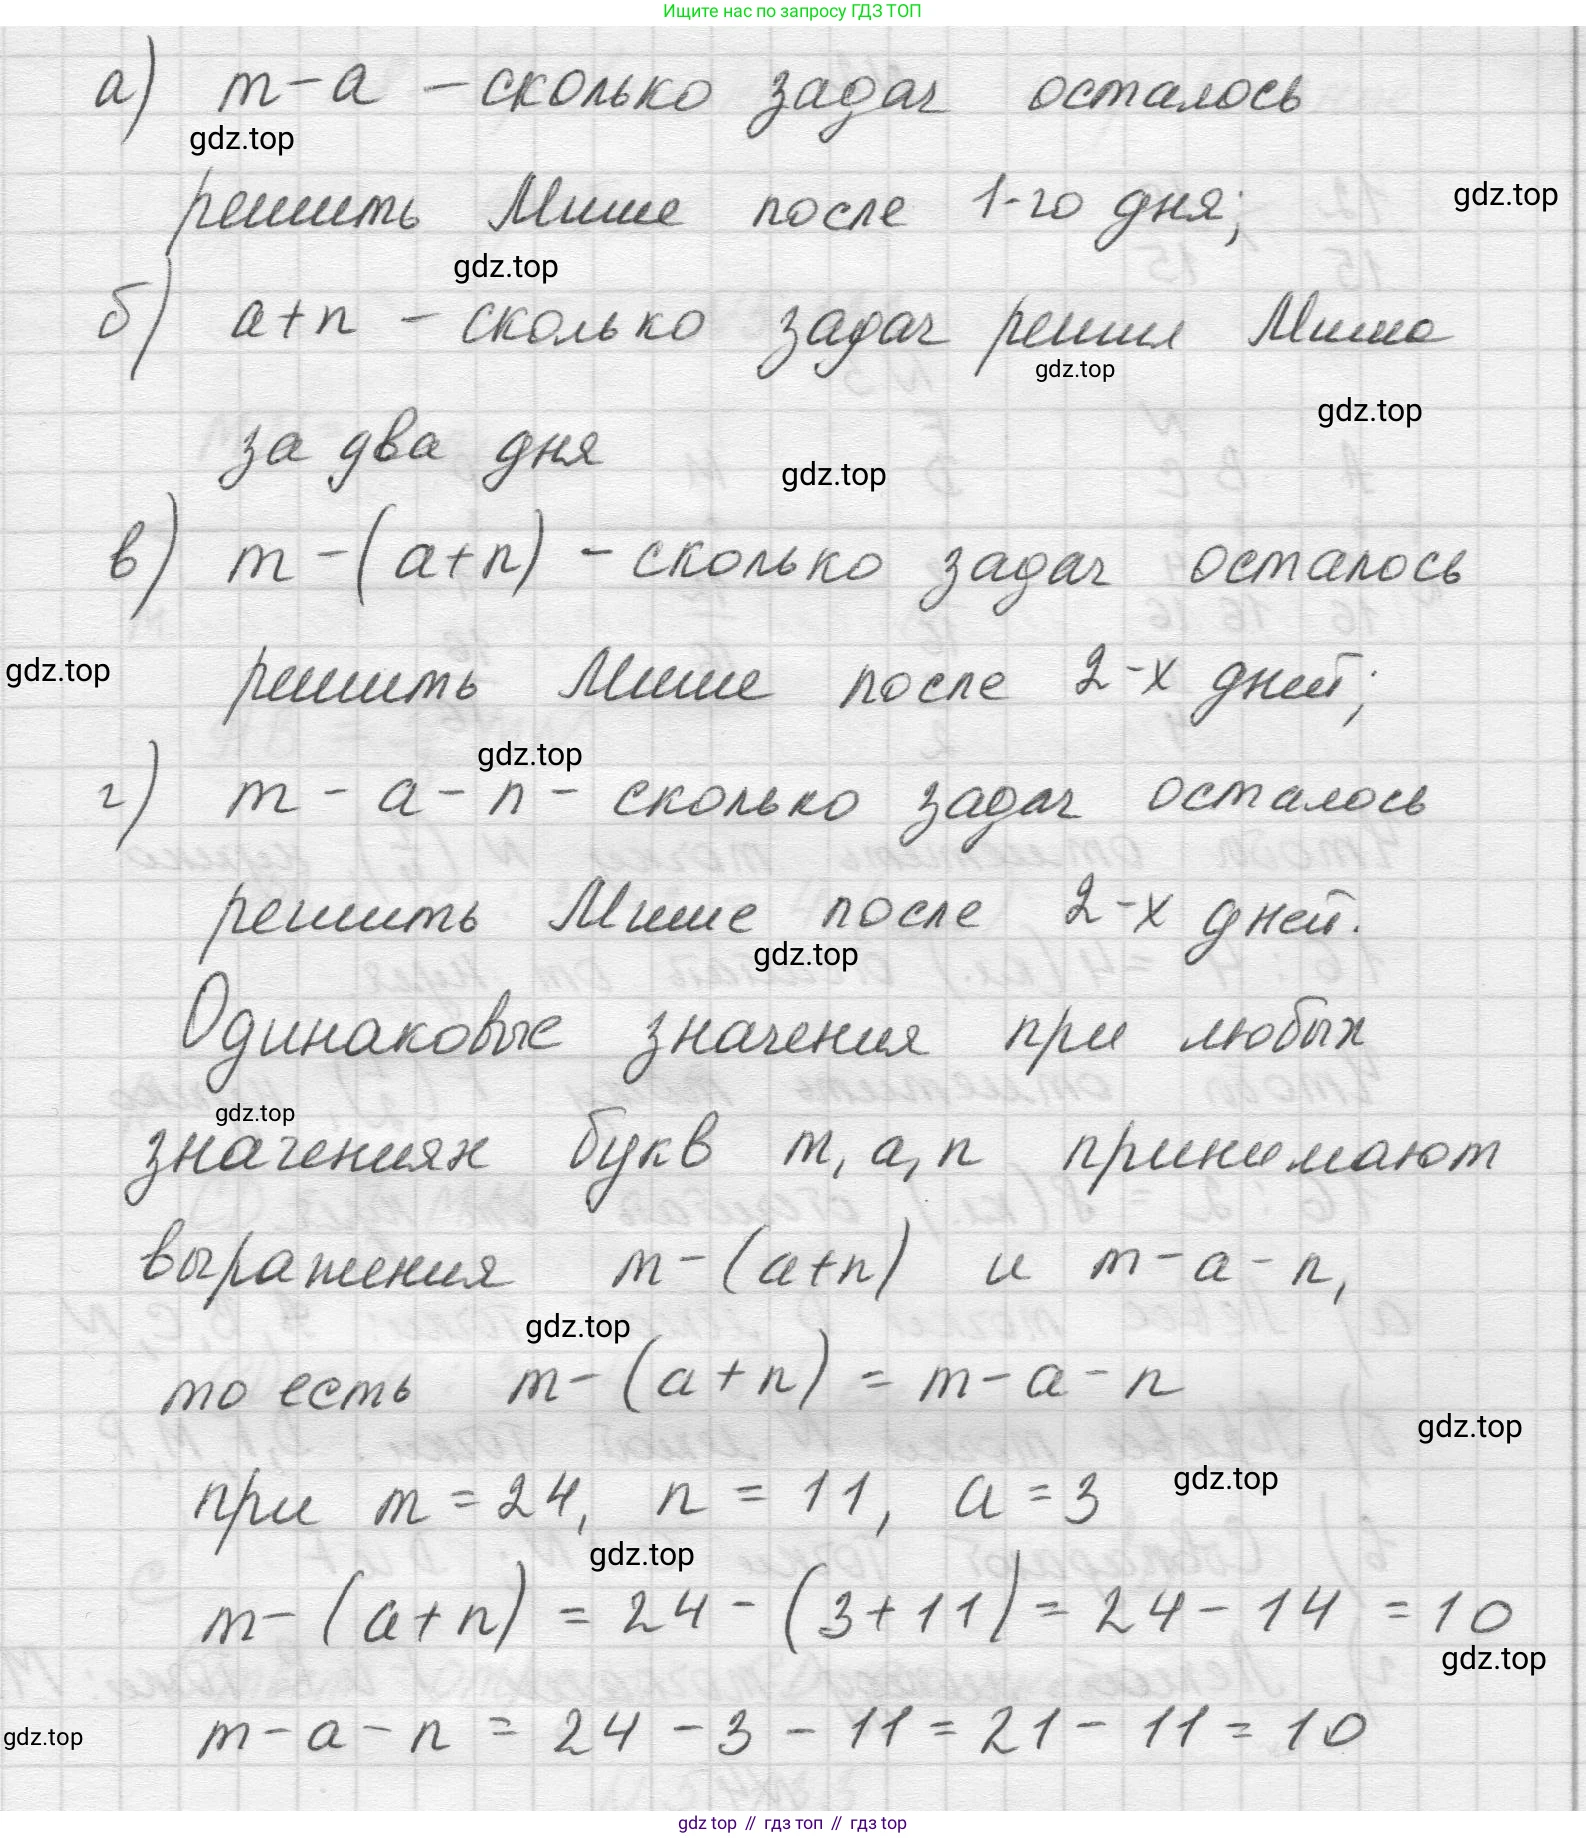 Ищите нас по запросу ГДЗ ТОП
а) m - a - сколько задач осталось
gdz.top
решить Мише после 1-го дня;
gdz.top
gdz.top
б) a+n - сколько задач решил Миша
gdz.top
gdz.top
за два дня
gdz.top
в) m - (a+n) - сколько задач осталось
gdz.top
решить Мише после 2-х дней;
gdz.top
г) m - a - n - сколько задач осталось
решить Мише после 2-х дней.
gdz.top
Одинаковые значения при любых
gdz.top
значениях букв m, a, n принимают
выражения m - (a+n) и m - a - n,
gdz.top
то есть m - (a+n) = m - a - n
gdz.top
при m = 24, n = 11, a = 3
gdz.top
gdz.top
m - (a+n) = 24 - (3+11) = 24 - 14 = 10
gdz.top
m - a - n = 24 - 3 - 11 = 21 - 11 = 10
gdz.top
gdz top // гдз топ // гдз top